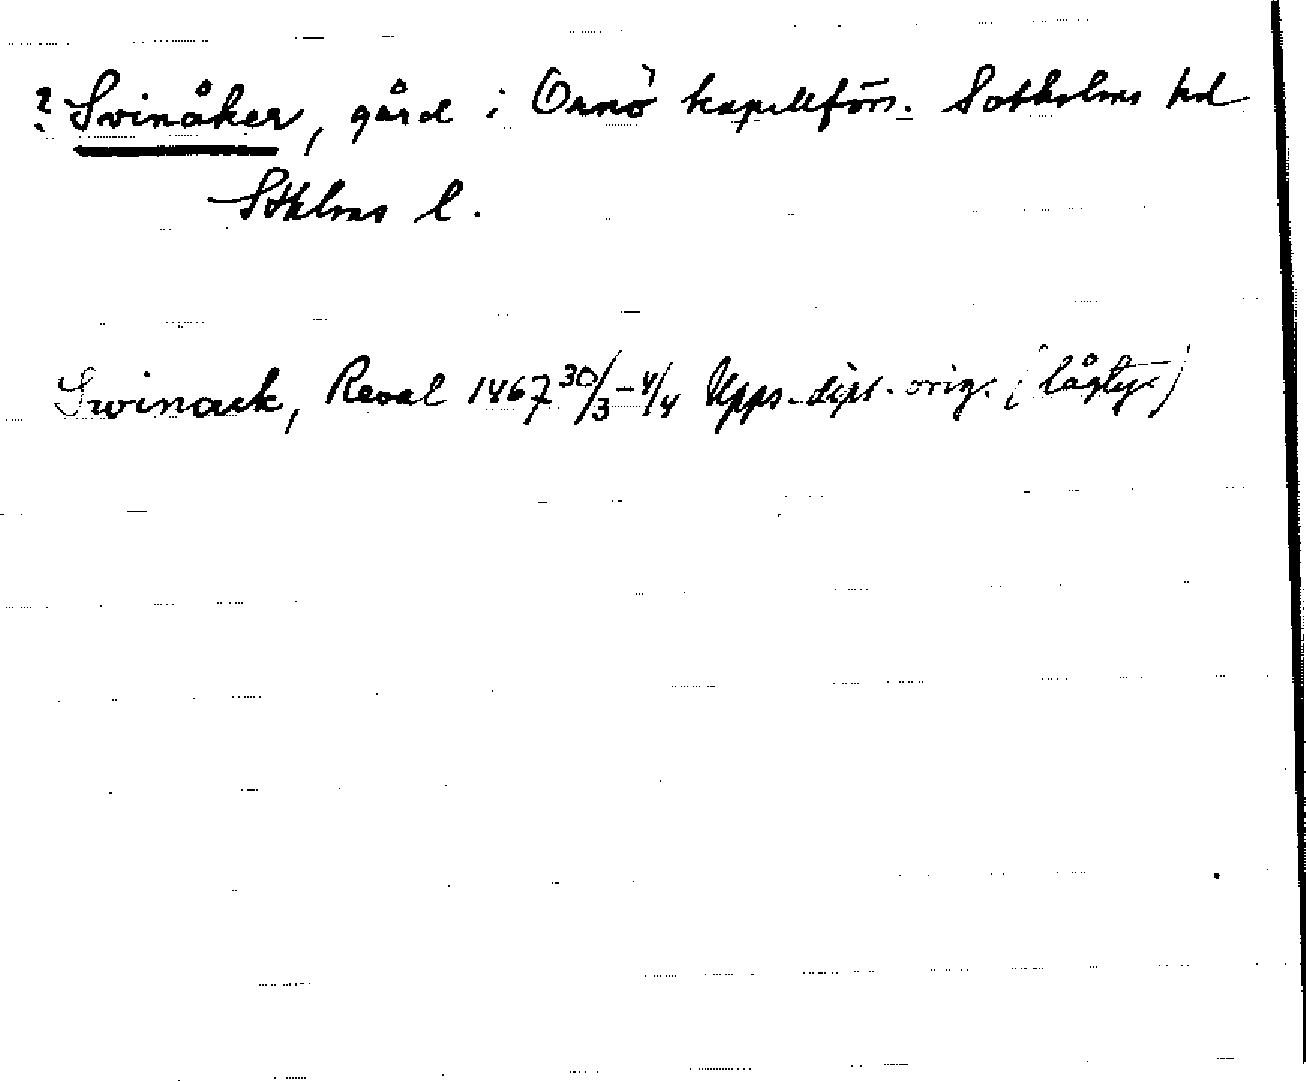 ? Svinåker, gård i Ornö kapellförs. Sotholms hd
Sthlms l.
Swinack, Reval 1467 30/3-4/4 Upps-dipl. orig. (lågty.)